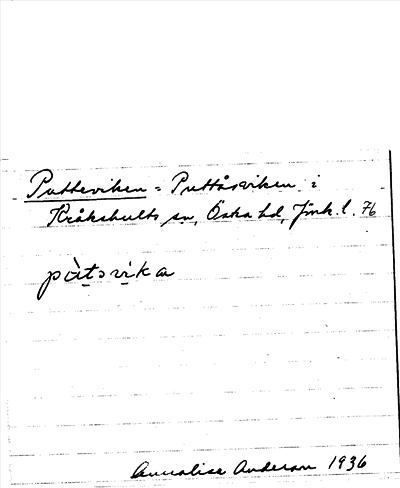 Putteviken = Puttåsviken i
Kråkshults sn, Östra hd, Jönk. l. 76
pu̠tsvi̠ka
Annalisa Anderson 1936